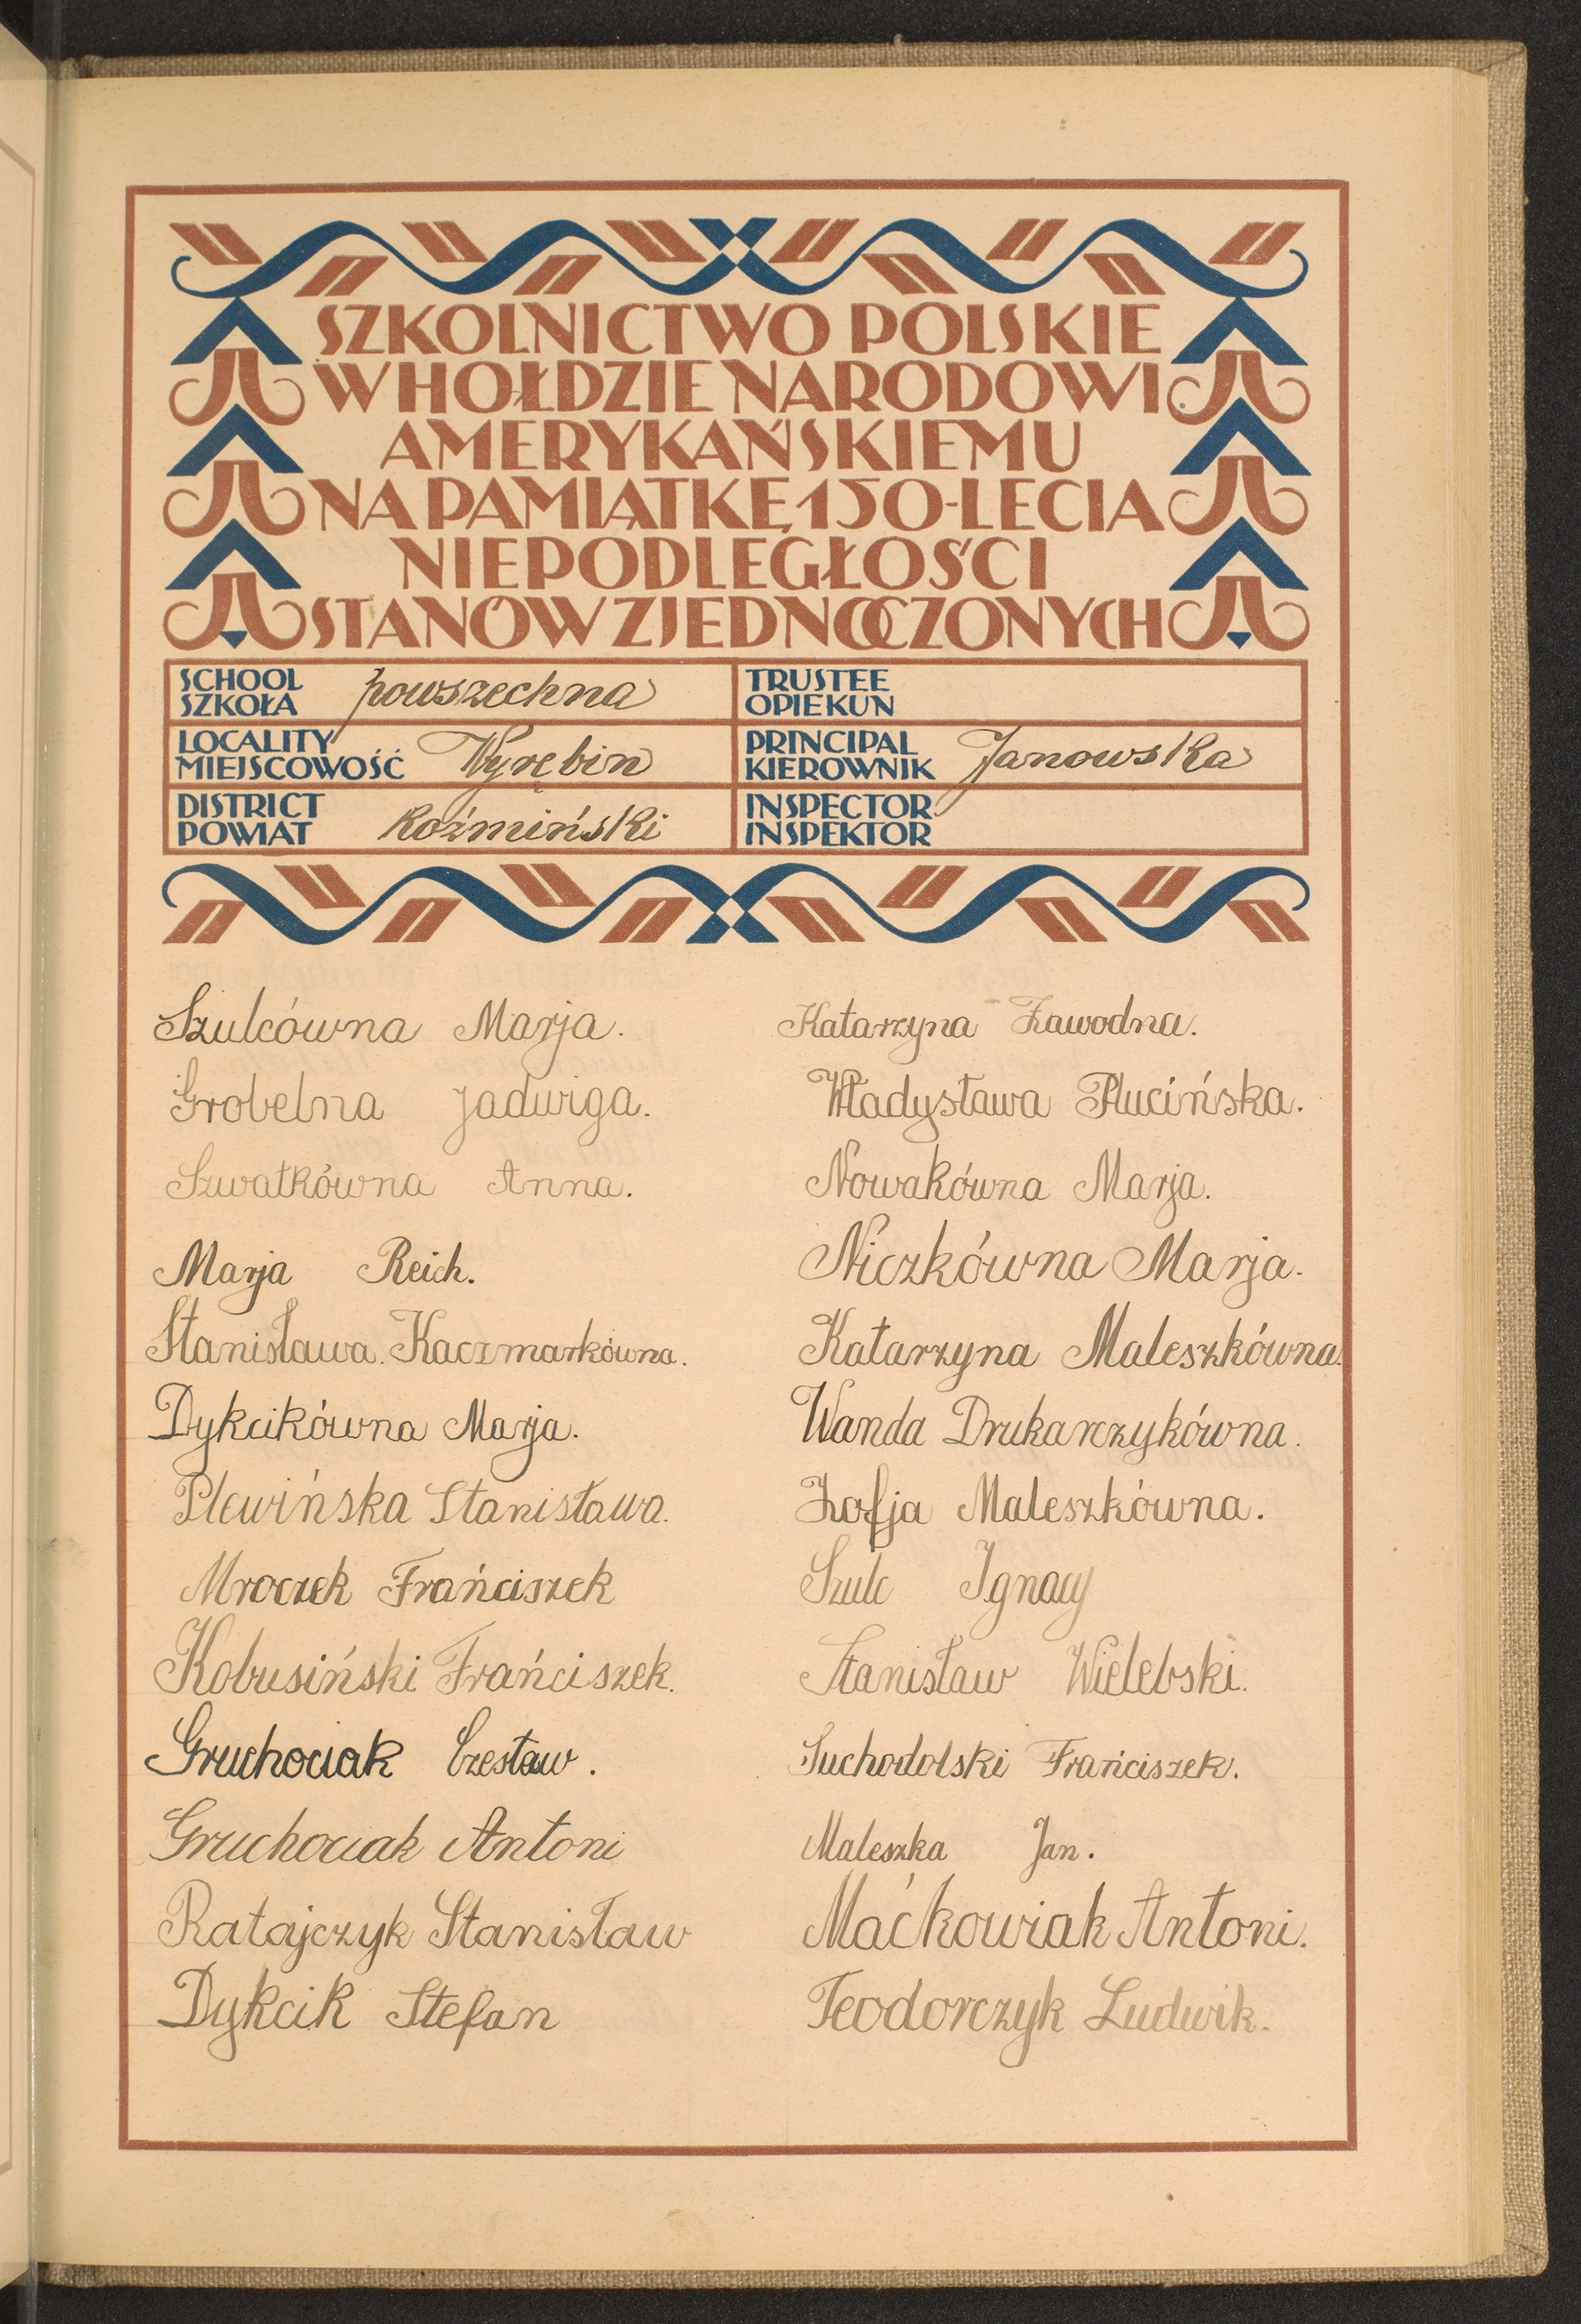 SZKOLNICTWO POLSKIE
W HOŁDZIE NARODOWI
AMERYKAŃSKIEMU
NA PAMIĄTKĘ 150-LECIA
NIEPODLEGŁOŚCI
STANÓW ZJEDNOCZONYCH
SCHOOL
SZKOŁA powszechna
TRUSTEE
OPIEKUN
LOCALITY
MIEJSCOWOŚĆ Wyrębin
PRINCIPAL
KIEROWNIK Janowska
DISTRICT
POWIAT Koźmiński
INSPECTOR
INSPEKTOR
Szulcówna Marja.
Grobelna Jadwiga.
Szwatkówna Anna.
Marja Reich.
Stanisława. Kaczmarkówna.
Dykcikówna Marja.
Plewińska Stanisława.
Mroczek Frańciszek
Kobusiński Frańciszek.
Gruchociak Czesław.
Gruchociak Antoni
Ratajczyk Stanisław
Dykcik Stefan
Katarzyna Zawodna.
Władysława Plucińska.
Nowakówna Marja.
Niczkówna Marja.
Katarzyna Maleszkówna.
Wanda Drukarczykówna.
Zofja Maleszkówna.
Szulc Ignacy
Stanisław Wielebski.
Suchodolski Frańciszek.
Maleszka Jan.
Maćkowiak Antoni.
Teodorczyk Ludwik.